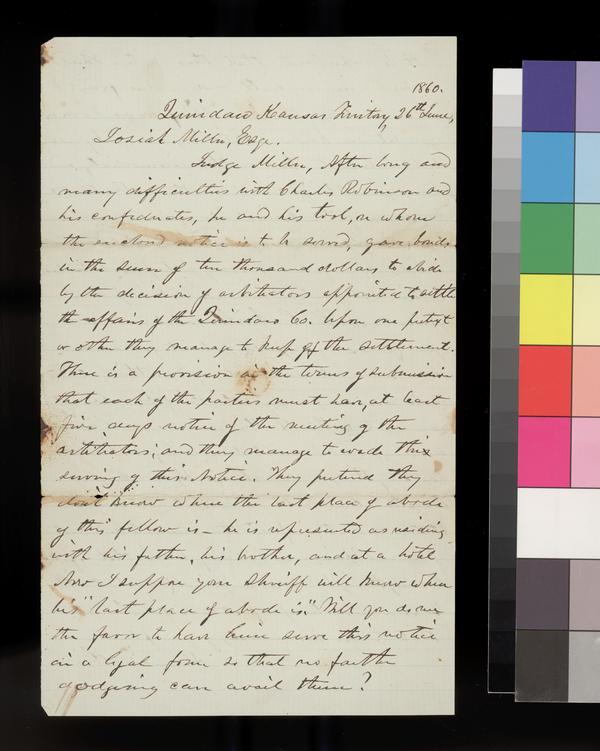 1860.
Quindaro Kansas Territory, 26th June,
Josiah Miller, Esqr.
Judge Miller, After long and
many difficulties with Charles Robinson and
his confederates, he and his tool, on whom
the enclosed notice is to be served, gave bonds
in the sum of ten thousand dollars to abide
by the decision of arbitrators appointed to settle
the affairs of the Quindaro Co. Upon one pretext
or other they manage to keep off the settlement.
There is a provision in the terms of submission
that each of the parties must have, at least
five days notice of the meeting of the
arbitrators; and they manage to evade the
serving of this Notice. They pretend they
don't know where the last place of abode
of this fellow is – he is represented as residing
with his father, his brother, and at a hotel
Now I suppose your Sheriff will know where
his "last place of abode is." Will you do me
the favor to have him serve this notice
in a legal form so that no farther
dodging can avail them?